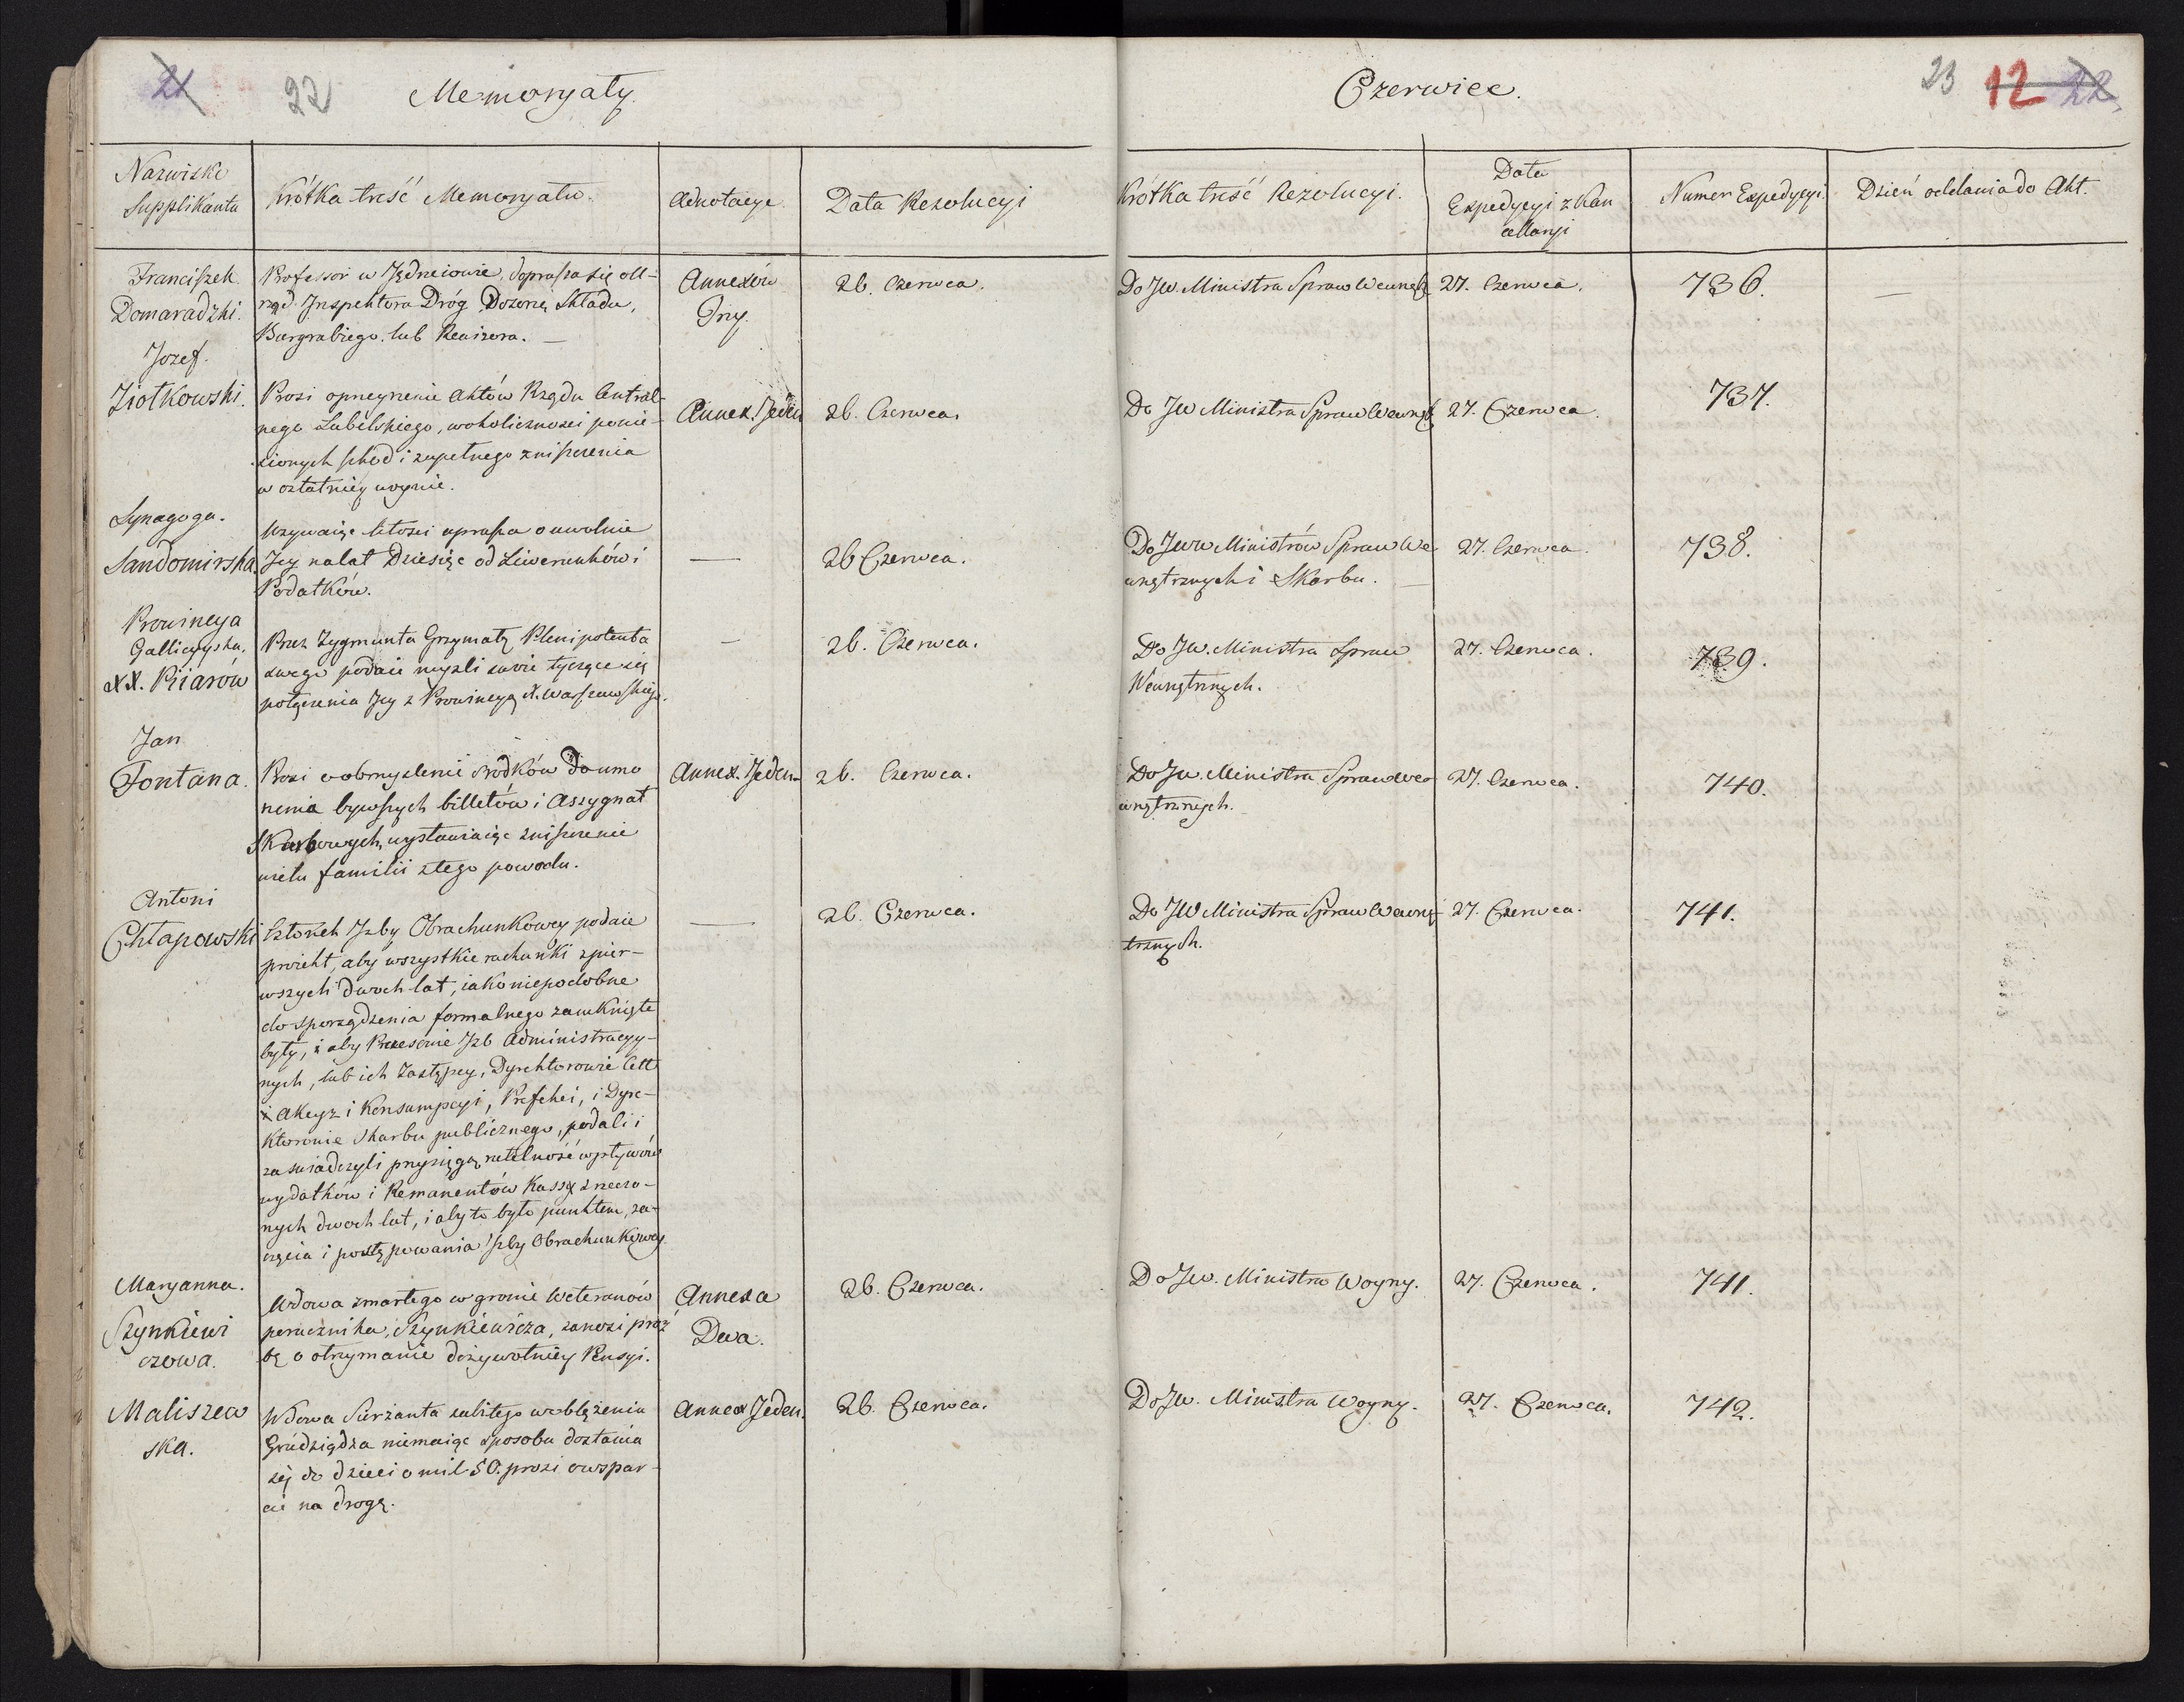 21 22 Memoryały.
Czerwiec. 23 12 22
Nazwisko
Supplikanta
Krótka treść Memoryału.
Adnotacye
Data Rezolucyi
Krótka treść Rezolucyi.
Data
Expedycyi z Kan
cellaryi
Numer Expedycyi.
Dzień oddania do Akt.
Franciszek
Domaradzki.
Professor w Jędrzeiowie, doprasza się o U-
rząd Inspektora Dróg, Dozorcę Składu,
Burgrabiego, lub Rewizora. —
Annexów
Trzy.
26. Czerwca.
Do JW. Ministra Spraw Wewnę
27. Czerwca.
736.
—
Jozef.
Ziołkowski.
Prosi o przeyrzenie Aktów Rządu Central-
nego Lubelskiego, w okoliczności ponie-
sionych szkod i zupełnego zniszczenia
w ostatniey woynie.
Annex. Jeden
26. Czerwca.
Do JW Ministra Spraw Wewnę
27. Czerwca.
737.
Synagoga.
Sandomirska.
Wzywaiąc litości uprasza o uwolnie
Jey na lat Dziesięć od Liwerunków i
Podatków.
—
26 Czerwca.
Do JWW Ministrów Spraw We
wnętrznych i Skarbu. —
27. Czerwca.
738.
Prowincya
Gallicyyska.
XX. Piiarów
Przez Zygmunta Grzymałę Plenipotenta
swego podaie myśli swoie tyczące się
połączenia Jey z Prowincyą X. Warszawskiego.
—
26. Czerwca.
Do JW. Ministra Spraw
Wewnętrznych.
27. Czerwca.
739.
Jan
Fontana.
Prosi o obmyslenie srodków do umo
rzenia bywszych billetów i Assygnat
Skarbowych, wystawiaiąc zniszczenie
wielu familii z tego powodu.
Annex. Jeden
26. Czerwca.
Do JW. Ministra Spraw We
wnętrznych.
27. Czerwca.
740.
Antoni
Chłapowski
Członek Izby Obrachunkowey podaie
proiekt, aby wszystkie rachunki z pier-
wszych dwoch lat, iako niepodobne
do sporządzenia formalnego zamknięte
były, i aby Prezesowie Izb Administracyy-
nych, lub ich Zastępcy, Dyrektorowie Cell
i Akcyz i Konsumpcyi, Prefekci, i Dyre-
ktorowie Skarbu publicznego, podali i
zaswiadczyli przysięgą rzetelność wpływów
wydatków i Remanentów Kassy z rzeczo-
nych dwoch lat, i aby to było punktem, za-
częcia i postępowania Izby Obrachunkowey
—
26. Czerwca.
Do JW Ministra Spraw Wewnę-
trznych.
27. Czerwca.
741.
Maryanna.
Szynkiewi
czowa.
Wdowa zmarłego w gronie Weteranów
porucznika, Szynkiewicza, zanosi proź
bę o otrzymanie dożywotniey Pensyi.
Annexa
Dwa.
26. Czerwca.
Do JW. Ministra Woyny.
27. Czerwca.
741.
Maliszew
ska.
Wdowa Sierżanta zabitego w oblężeniu
Grudziądza niemaiąc sposobu dostania
się do dzieci o mil 50. prosi o wspar-
cie na drogę.
Annex Jeden.
26. Czerwca.
Do JW. Ministra Woyny.
27. Czerwca.
742.